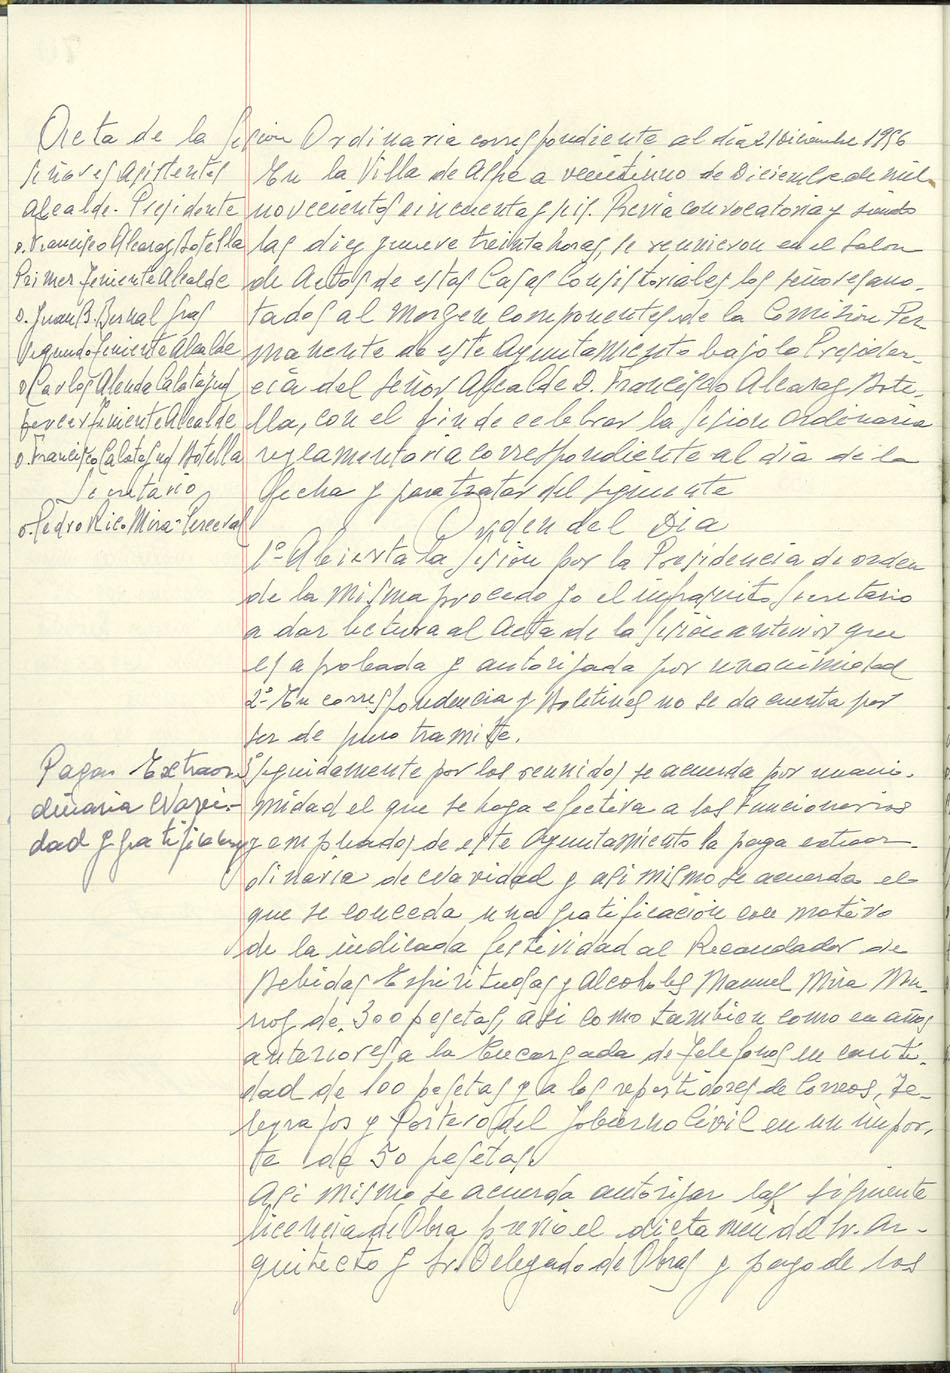 Acta de la Sesion Ordinaria correspondiente al día 21 Diciembre 1956
Señores Asistentes
Alcalde-Presidente
D. Francisco Alcaraz Botella
Primer Teniente Alcalde
D. Juan B. Bernal Gras
Segundo Teniente Alcalde
D. Carlos Alenda Calatayud
Tercer Teniente Alcalde
D. Francisco Calatayud Botella
Secretario
D. Pedro Rico Mira-Perceval
En la Villa de Aspe a veintiuno de Diciembre de mil
novecientos cincuenta y seis. Previa convocatoria y siendo
las diez y nueve treinta horas, se reunieron en el Salon
de Actos de estas Casas Consistoriales los señores ano-
tados al margen componentes de la Comision Per-
manente de este Ayuntamiento bajo la Presiden-
cia del Señor Alcalde D. Francisco Alcaraz Bote-
lla, con el fin de celebrar la sesion ordinaria
reglamentaria correspondiente al dia de la
fecha y para tratar del siguiente
Orden del Dia
1º- Abierta la Sesion por la Presidencia de orden
de la misma procedo yo el infrascrito Secretario
a dar lectura al Acta de la sesion anterior que
es aprobada y autorizada por unanimidad
2º- En correspondencia y Boletines no se da cuenta por
ser de puro tramite.
Pagas Extraor
dinaria Navi-
dad y gratificacion
3º Seguidamente por los reunidos se acuerda por unani-
midad el que se haga efectiva a los Funcionarios
y empleados de este Ayuntamiento la paga extraor-
dinaria de Navidad y asi mismo se acuerda el
que se conceda una gratificación con motivo
de la indicada festividad al Recaudador de
Bebidas Espirituosas y Alcoholes Manuel Mira
de 300 pesetas, asi como tambien como en años
anteriores a la Encargada de Telefonos en canti-
dad de 100 pesetas y a los repartidores de Correos, Te-
legrafos y Portero del Gobierno Civil en un impor-
te de 50 pesetas.
Asi mismo se acuerda autorizar las siguiente
licencia de Obra previo el dictamen del Sr. Ar-
quitecto y Sr. Delegado de Obras y pago de los